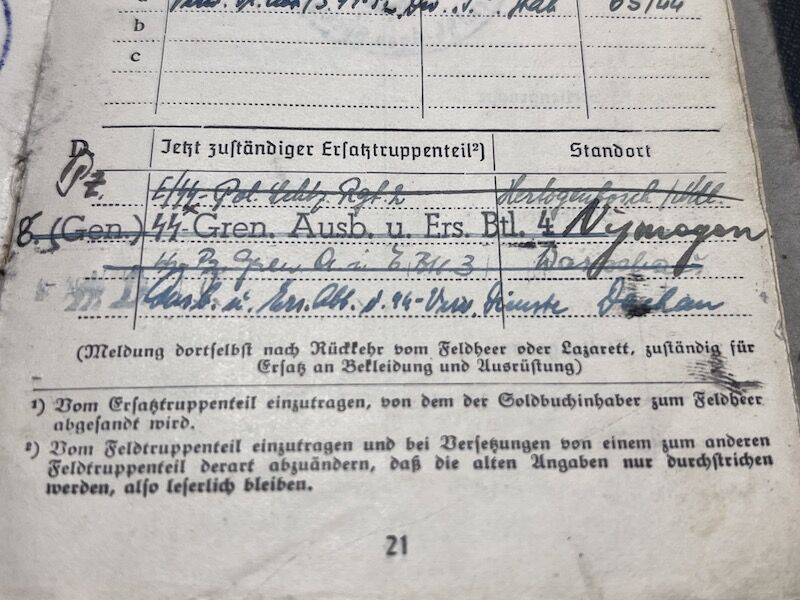 65/44
b
c
D Jetzt zuständiger Ersatztruppenteil²) Standort
Pz.
E/SS-Pol. Schtz. Rgt. 2 Hertogenbosch/Holl.
8. (Gen.) SS-Gren. Ausb. u. Ers. Btl. 4 Nijmegen
Pz. Gren A u E Btl 3 Warschau
Ausb. u. Ers. Abt. d. SS-Verw. Dienste Dachau
(Meldung dortselbst nach Rückkehr vom Feldheer oder Lazarett, zuständig für
Ersatz an Bekleidung und Ausrüstung)
¹) Vom Ersatztruppenteil einzutragen, von dem der Soldbuchinhaber zum Feldheer
abgesandt wird.
²) Vom Feldtruppenteil einzutragen und bei Versetzungen von einem zum anderen
Feldtruppenteil derart abzuändern, daß die alten Angaben nur durchstrichen
werden, also leserlich bleiben.
21